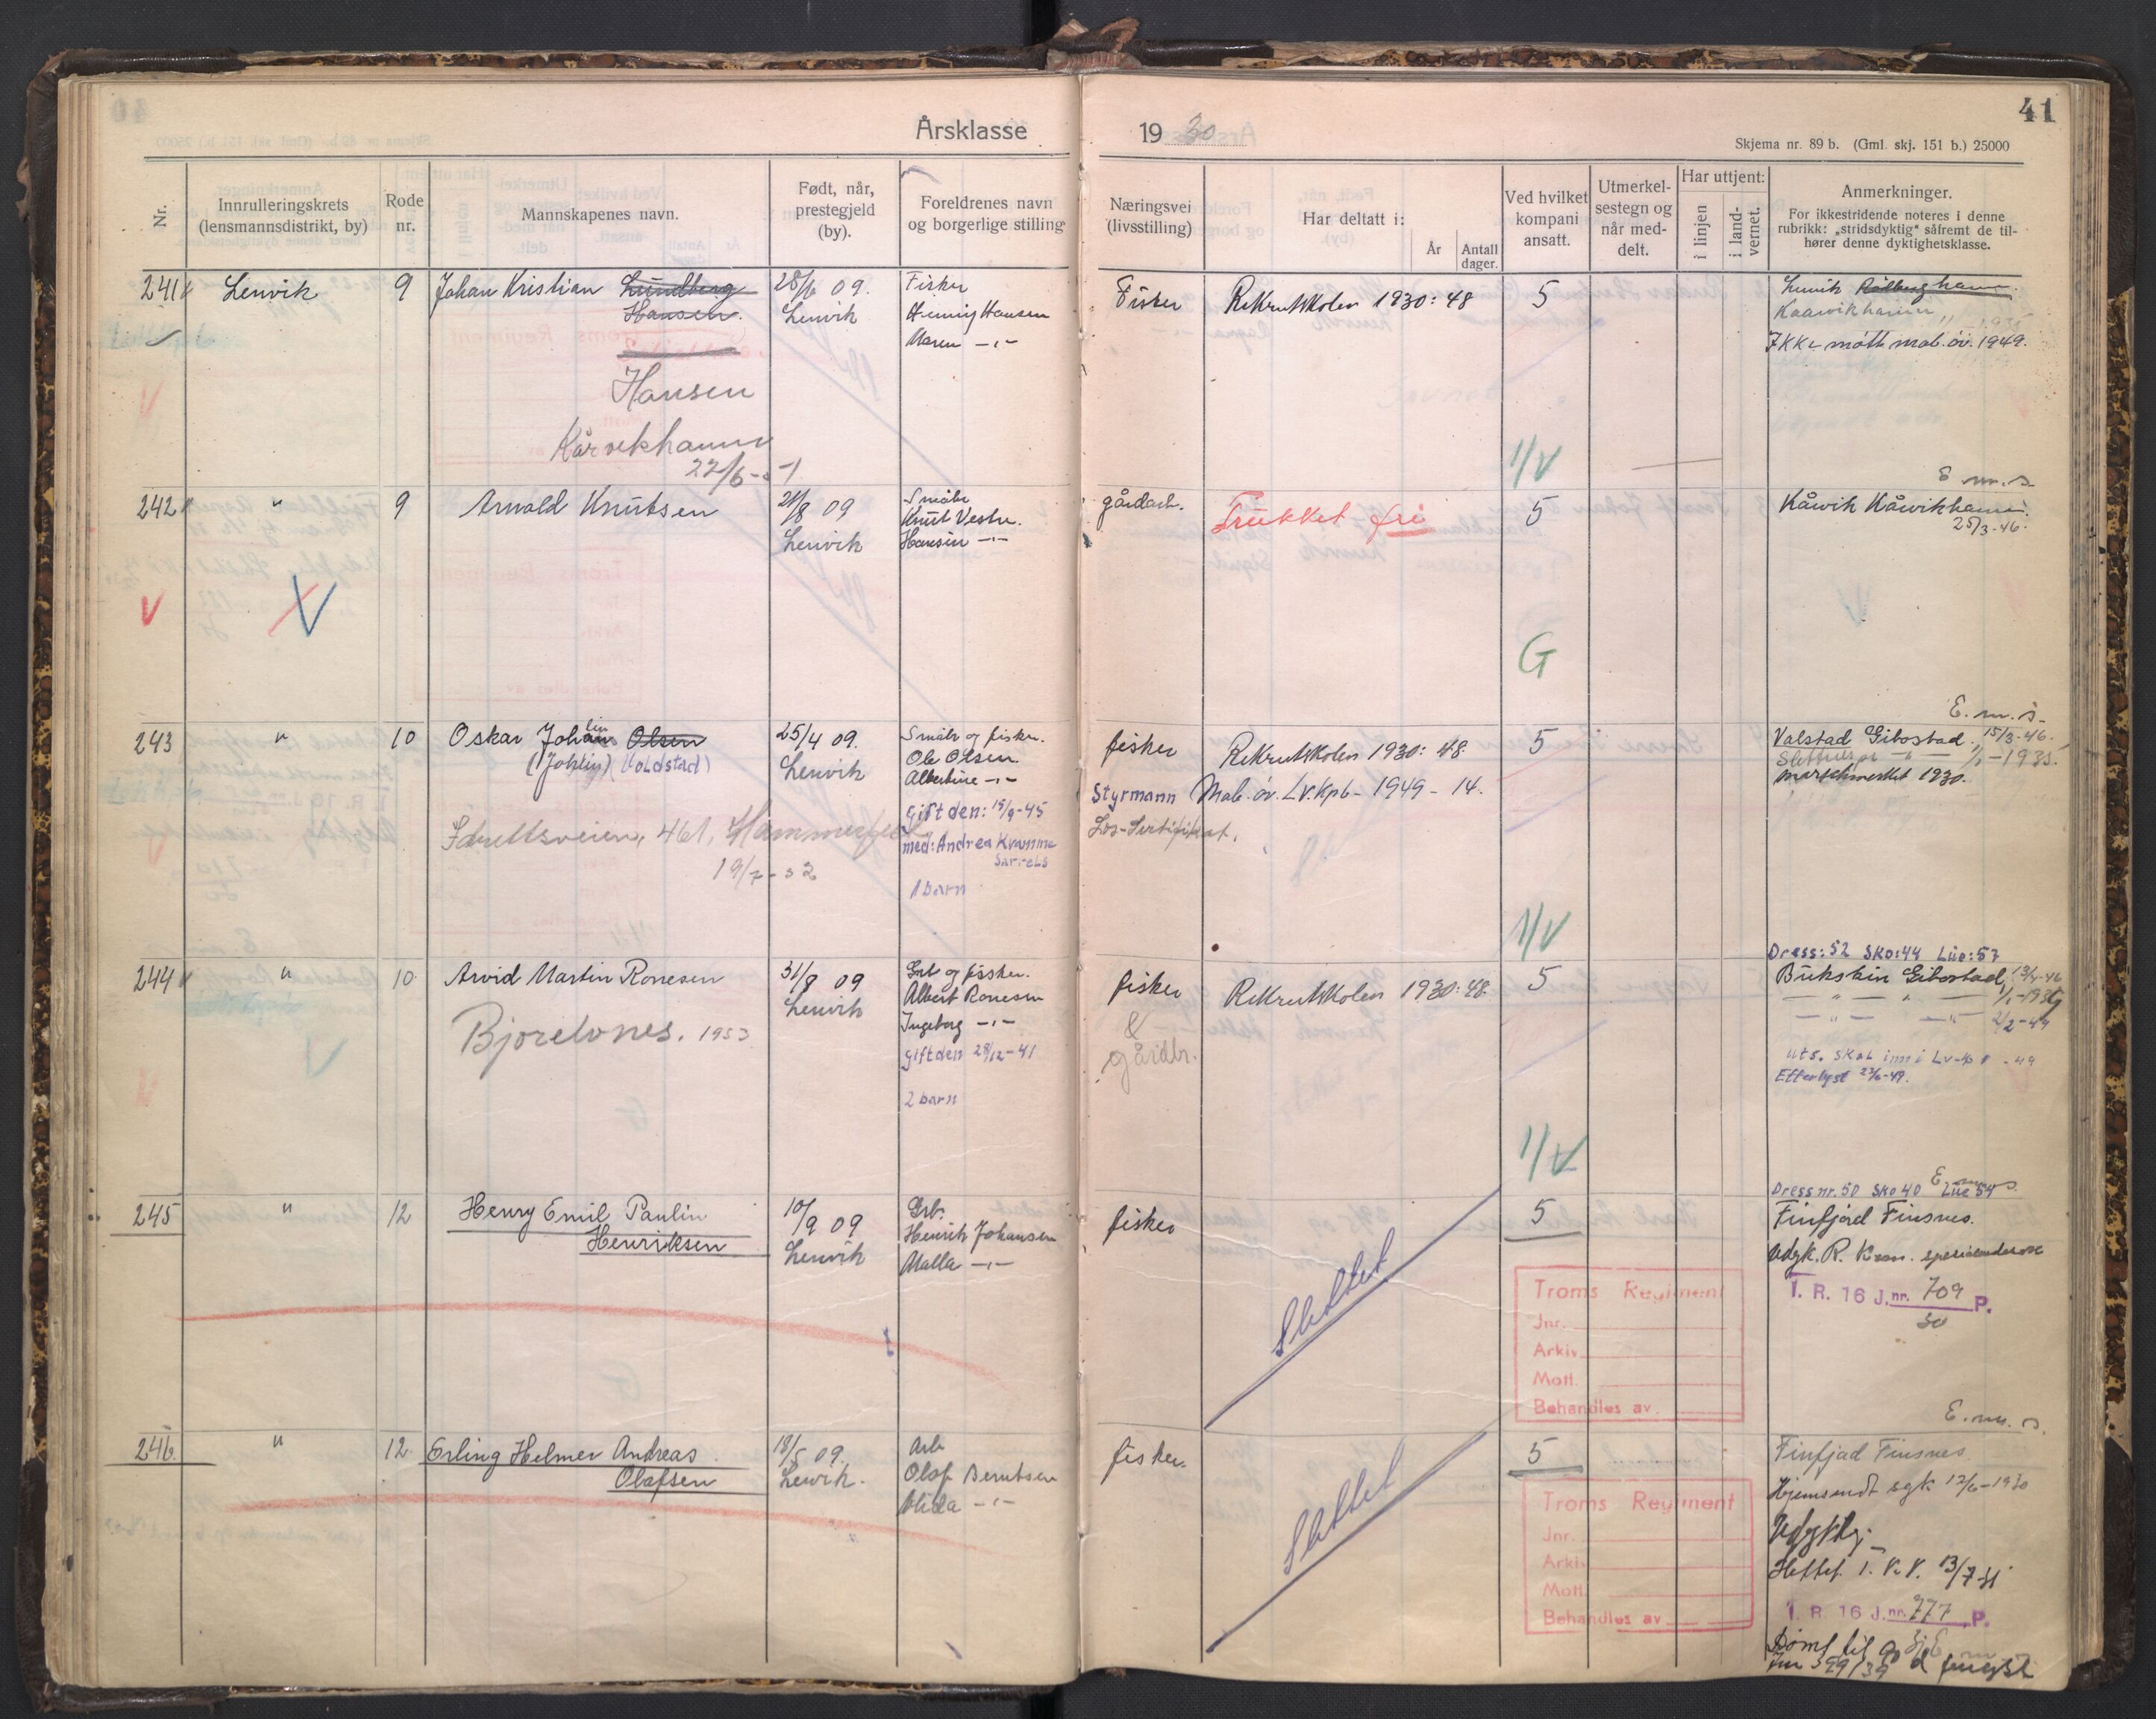 41
Årsklasse 1930
Skjema nr. 89 b. (Gml. skj. 151 b.) 25000
Nr.
Innrulleringskrets (lensmannsdistrikt, by)
Rode nr.
Mannskapenes navn.
Født, når, prestegjeld (by).
Foreldrenes navn og borgerlige stilling
Næringsvei (livsstilling)
Har deltatt i:
År
Antall dager.
Ved hvilket kompani ansatt.
Utmerkelsestegn og når meddelt.
Har uttjent:
i linjen
i landvernet.
Anmerkninger.
For ikkestridende noteres i denne rubrikk: „stridsdyktig" såfremt de tilhører denne dyktighetsklasse.
241 Lenvik 9 Johan Kristian Lundberg
Hansen
Hansen
Kårvikhamn
22/6-51
28/6 09.
Lenvik
Fisker
Henrig Hansen
Maren -"-
Fisker
Rekrutskolen 1930: 48
5
Lenvik
Kaarvikhamn
Ikke møtt mob. øv. 1949.
1/V
E.m.s.
242 " 9 Arnold Knutsen
21/8 09
Lenvik
Småbr
Knut Vestre.
Hansin -"-
gårdarb.
Trukket fri
5
Kåvik Kåvikhamn.
25/3-46.
V
V
G
E.m.s.
243 " 10 Oskar Johan Olsen
lin
(Johlin) (Voldstad)
Idrettsveien, 461, Hammerfest
19/7-52
25/4 09.
Lenvik
Småbr og fisker.
Ole Olsen
Albertine -"-
Gift den: 15/9-45
med: Andrea Kvamme
1 barn
fisker
Styrmann
Los-Sertifikat.
Rekrutskolen 1930: 48
Mob. øv. Lv.kp6- 1949 - 14.
5
Valstad Gibostad. 15/3-46.
1/1-1935.
marschmerket 1930.
1/V
Dress: 52 Sko: 44 Lue: 57
244 " 10 Arvid Martin Ronesen
Bjorelvnes. 1953
31/8 09
Lenvik
Grb og fisker.
Albert Ronesen
Ingeborg -"-
Gift den 28/12-41
2 barn
fisker
&
gårdbr.
Rekrutskolen 1930: 48
5
Bukskin Gibostad,
2/2-49
Uts. Skal inn i Lv-kp -49
Etterlyst 23/6-49.
1/V
E.m.s.
Dress nr. 50 Sko 40 Lue 54
245 " 12 Henry Emil Paulin
Henriksen
10/9 09
Lenvik
Grb.
Henrik Johansen
Malla -"-
fisker
Slettet
5
Finfjord Finsnes.
Udyk. R.
I. R. 16 J.nr. 709 P.
30
Troms Regiment
Jnr.
Arkiv
Mott.
Behandles av
E.m.s.
246. " 12. Erling Helmer Andreas
Olafsen
18/5 09.
Lenvik.
Arb
Olaf Berntsen
Alida -"-
fisker.
Slettet
5
Finfjad Finsnes
Hjemsendt sgk 17/6-1930
13/7-31
I. R. 16 J.nr. 777 P.
Troms Regiment
Jnr.
Arkiv
Mott.
Behandles av
Dømt til 90 d fengsl